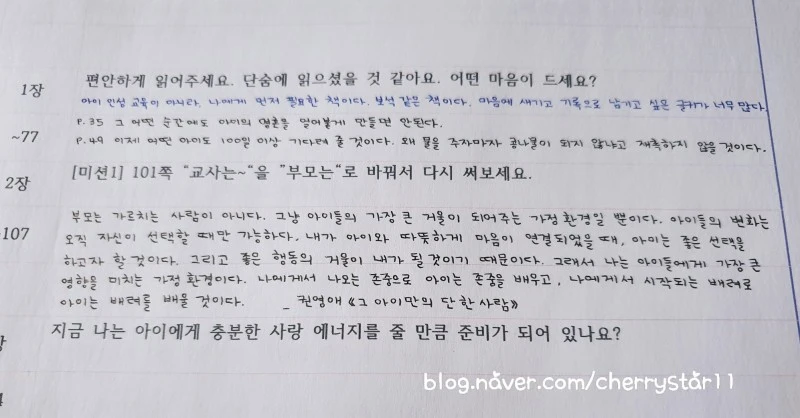 편안하게 읽어주세요. 단숨에 읽으셨을 것 같아요. 어떤 마음이 드세요?
1장
아이 인성 교육이 아니라, 나에게 먼저 필요한 책이다. 보석 같은 책이다. 마음에 새기고 기록으로 남기고 싶은 글귀가 너무 많다.
p.35 그 어떤 순간에도 아이의 영혼을 얼어붙게 만들면 안된다.
~77
p.49 이제 어떤 아이도 100일 이상 기다려 줄 것이다. 왜 물을 주자마자 콩나물이 되지 않냐고 재촉하지 않을 것이다.
[미션1] 101쪽 "교사는~"을 "부모는"로 바꿔서 다시 써보세요.
2장
부모는 가르치는 사람이 아니다. 그냥 아이들의 가장 큰 거울이 되어주는 가정 환경일 뿐이다. 아이들의 변화는
107
오직 자신이 선택할 때만 가능하다. 내가 아이와 따뜻하게 마음이 연결되었을 때, 아이는 좋은 선택을
하고자 할 것이다. 그리고 좋은 행동의 거울이 내가 될 것이기 때문이다. 그래서 나는 아이들에게 가장 큰
영향을 미치는 가정 환경이다. 나에게서 나오는 존중으로 아이는 존중을 배우고, 나에게서 시작되는 배려로
아이는 배려를 배울 것이다. _ 권영애 《그 아이만의 단 한 사람》
지금 나는 아이에게 충분한 사랑 에너지를 줄 만큼 준비가 되어 있나요?
blog.naver.com/cherrystar11